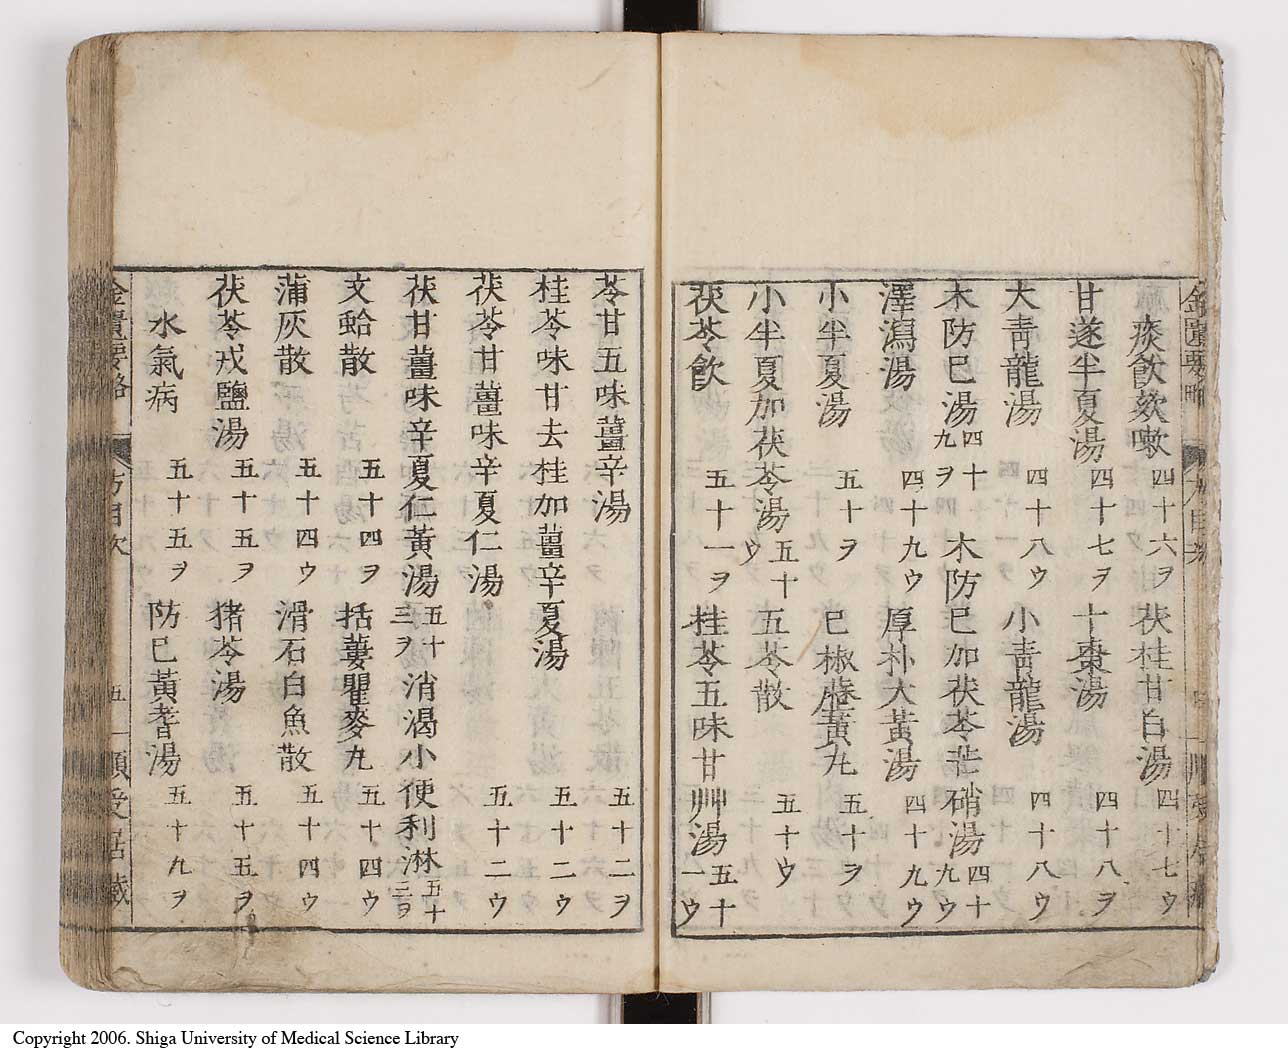 痰飮欬嗽 四十六ヲ 茯桂甘白湯 四十七ウ
甘遂半夏湯 四十七ヲ 十棗湯 四十八ヲ
大靑龍湯 四十八ウ 小靑龍湯 四十八ウ
木防已湯 四十九ヲ 木防已加茯苓芒硝湯 四十九ウ
澤瀉湯 四十九ウ 厚朴大黃湯 四十九ウ
小半夏湯 五十ヲ 已椒藶黃丸 五十ヲ
小半夏加茯苓湯 五十ウ 五苓散 五十ウ
茯苓飮 五十一ヲ 桂苓五味甘艸湯 五十一ウ
苓甘五味薑辛湯 五十二ヲ
桂苓味甘去桂加薑辛夏湯 五十二ウ
茯苓甘薑味辛夏仁湯 五十二ウ
茯甘薑味辛夏仁黃湯 五十三ヲ 消渴小便利淋 五十三ヲ
文蛤散 五十四ヲ 括蔞瞿麥丸 五十四ウ
蒲灰散 五十四ウ 滑石白魚散 五十四ウ
茯苓戎鹽湯 五十五ヲ 猪苓湯 五十五ヲ
水氣病 五十五ヲ 防已黃耆湯 五十九ヲ
金匱要略 方目次 五 一順受居藏
Copyright 2006. Shiga University of Medical Science Library